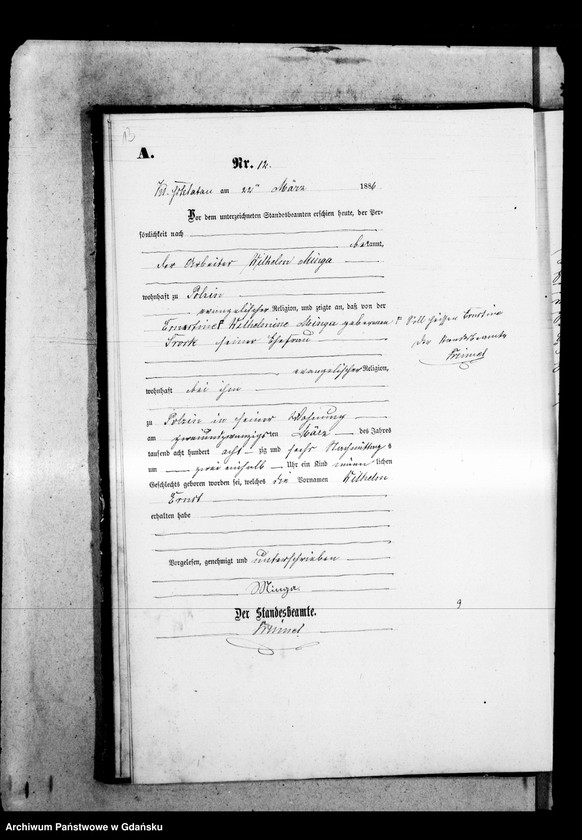 13
A.
Nr. 12.
am 22ten März 1886
Vor dem unterzeichneten Standesbeamten erschien heute, der Per-
sönlichkeit nach
bekannt,
der Arbeiter Wilhelm Minga
wohnhaft zu Polzin
evangelischer Religion, und zeigte an, daß von der
Wilhelmine Minga geborenen
seiner Ehefrau
evangelischer Religion,
wohnhaft bei ihm
zu Polzin in seiner Wohnung
am zweiundzwanzigsten März des Jahres
tausend acht hundert acht zig und sechs Nachmittags
um zwei einhalb Uhr ein Kind männlichen
Geschlechts geboren worden sei, welches die Vornamen Wilhelm
Ernst
erhalten habe
Vorgelesen, genehmigt und unterschrieben
Minga.
Der Standesbeamte.
* Soll heißen Ernestine
Der Standesbeamte
9
Archiwum Państwowe w Gdańsku